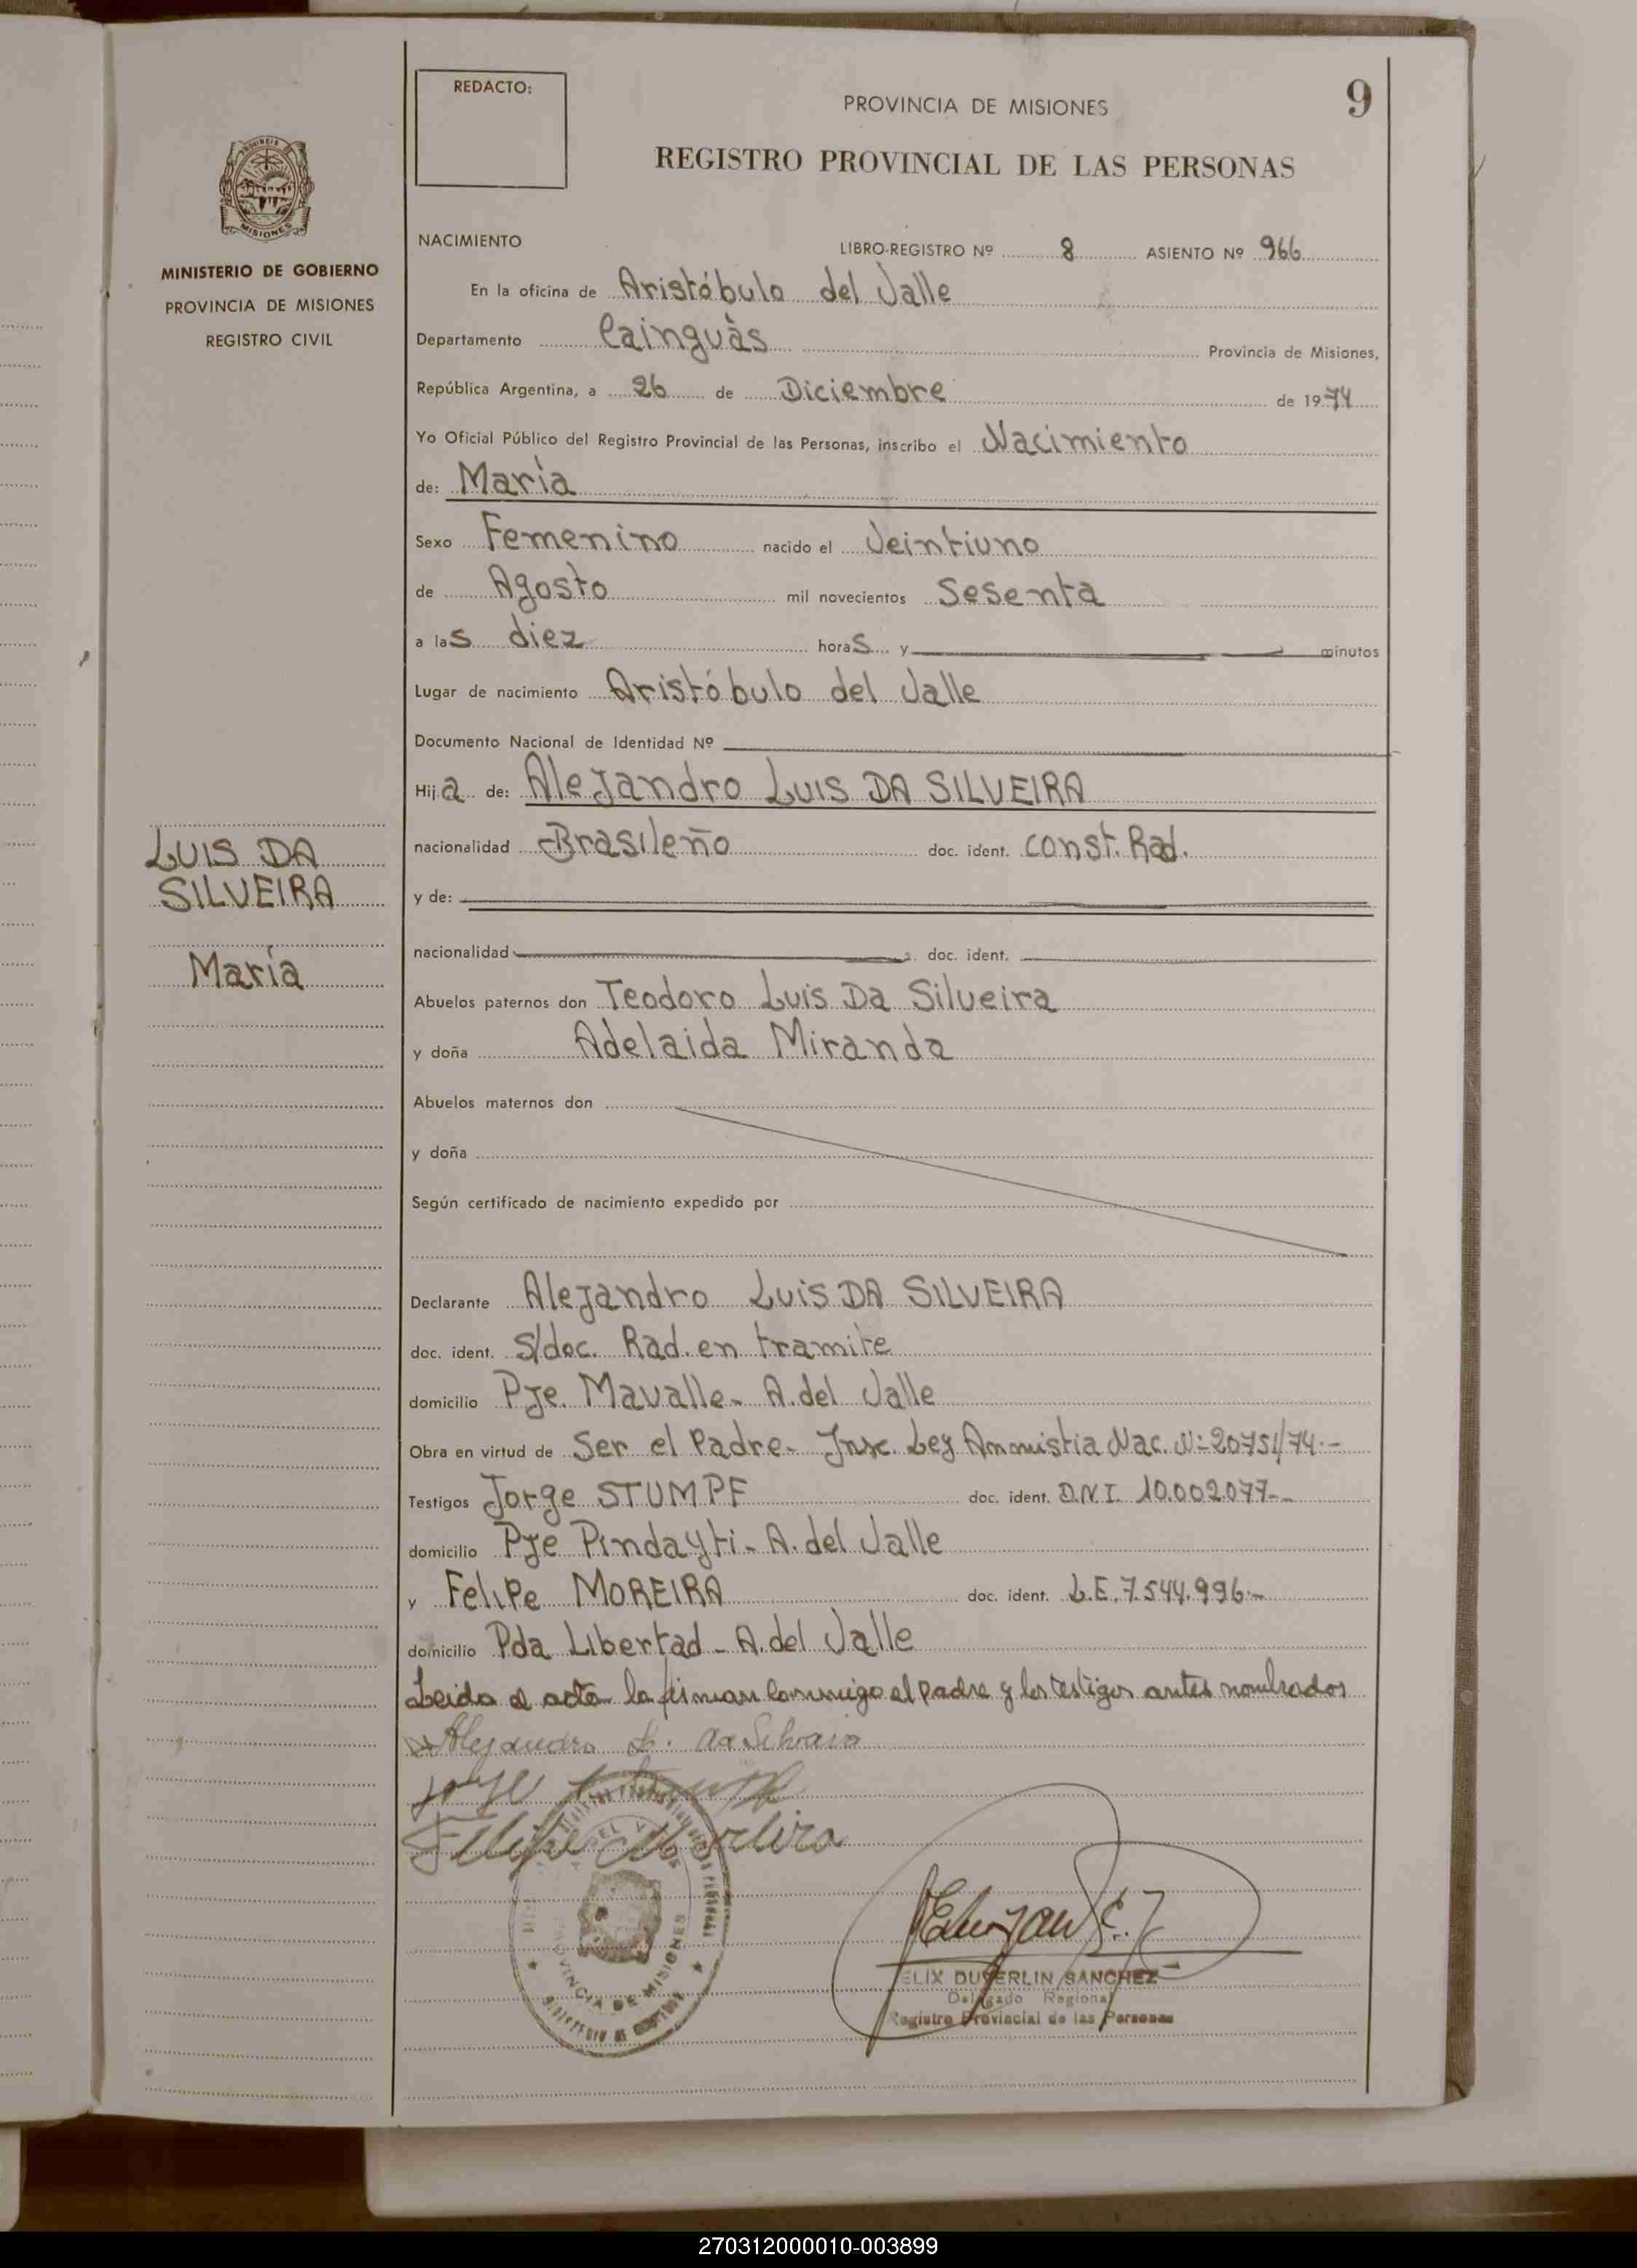 REDACTO:
PROVINCIA DE MISIONES
9
REGISTRO PROVINCIAL DE LAS PERSONAS
PROVINCIA DE
MISIONES
MINISTERIO DE GOBIERNO
PROVINCIA DE MISIONES
REGISTRO CIVIL
NACIMIENTO
LIBRO-REGISTRO Nº 8 ASIENTO Nº 966
En la oficina de Aristóbulo del Valle
Departamento Cainguàs Provincia de Misiones,
República Argentina, a 26 de Diciembre de 1974
Yo Oficial Público del Registro Provincial de las Personas, inscribo el Nacimiento
de: Marìa
Sexo Femenino nacido el Veintiuno
de Agosto mil novecientos Sesenta
a las diez horas y minutos
Lugar de nacimiento Aristóbulo del Valle
Documento Nacional de Identidad Nº
Hija de: Alejandro LUIS DA SILVEIRA
nacionalidad Brasileño doc. ident. const. Rad.
y de:
nacionalidad doc. ident.
LUIS DA
SILVEIRA
María
Abuelos paternos don Teodoro Luis Da Silveira
y doña Adelaida Miranda
Abuelos maternos don
y doña
Según certificado de nacimiento expedido por
Declarante Alejandro LUIS DA SILVEIRA
doc. ident. S/doc. Rad. en tramite
domicilio Pje. Mavalle- A. del Valle
Obra en virtud de Ser el Padre- Insc. Ley Amnistia Nac. Nº 20751/74.-
Testigos Jorge STUMPF doc. ident. D.N.I. 10.002.077-
domicilio Pje Pindayti- A. del Valle
y Felipe MOREIRA doc. ident. L.E. 7.544.996-
domicilio Pda Libertad - A. del Valle
Leida el acta la firman conmigo el padre y los testigos antes nombrados
Alejandro L. da Silvaia
Jorge
Felipe Moreira
PROVINCIA DE MISIONES
FELIX DUVERLIN SANCHEZ
Delegado Regional
Registro Provincial de las Personas
270312000010-003899